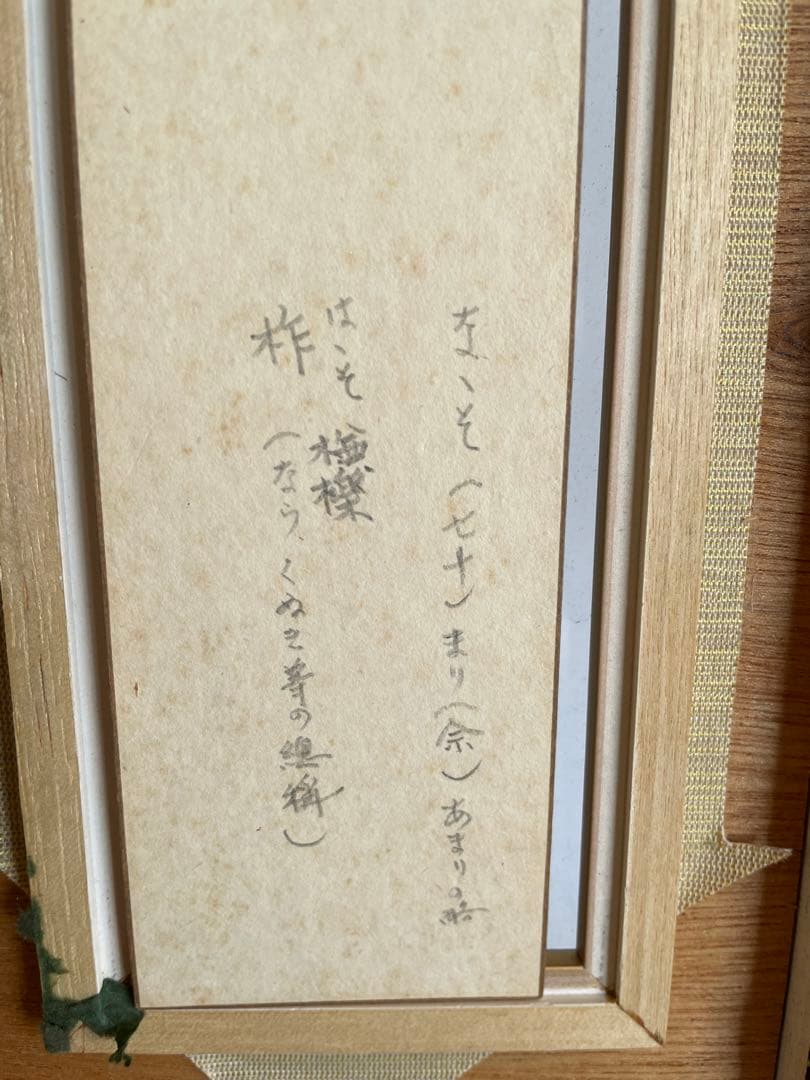 なゝそ(七十)まり(余)あまりの略
はゝそ
柞
(なら、くぬき等の総称)